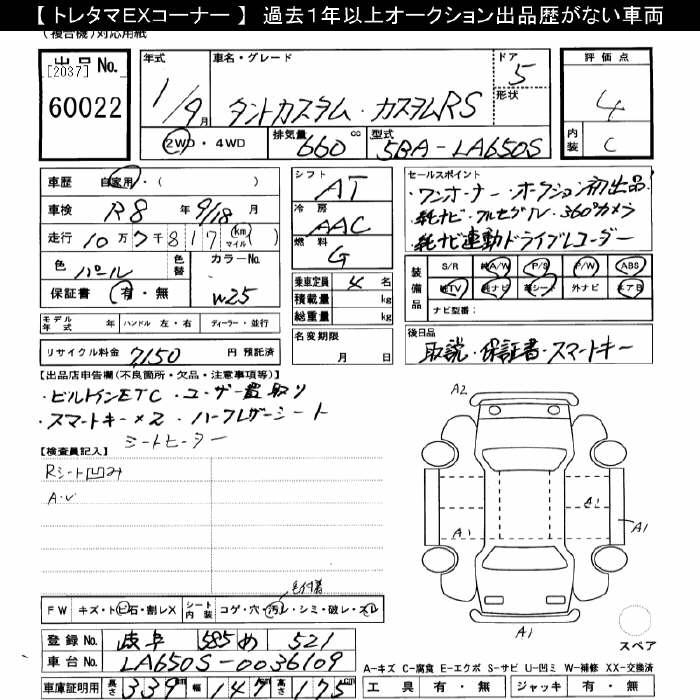 【 トレタマEXコーナー 】 過去1年以上オークション出品歴がない車両
(複合機)対応用紙
出品No.
[2037]
60022
年式
1/9月
車名・グレード
タントカスタム・カスタムRS
ドア
5
形状
評価点
4
内装
C
2WD・4WD
排気量
660 cc
型式
5BA-LA650S
車歴 自家用・( )
車検 R8 年 9/18 月
走行 10万7千817(km マイル)( )
色 パール
色替
カラーNo.
W25
保証書 有・無
モデル年式 年 ハンドル 左・右 ディーラー・並行
リサイクル料金 7150 円 預託済
シフト
AT
冷房
AAC
燃料
G
乗車定員 4 名
積載量 kg
総重量 kg
名変期限
月 日
セールスポイント
・ワンオーナー・オークション初出品!
・純ナビ・フルセグTV・360°カメラ
・純ナビ連動ドライブレコーダー
装備品
S/R 純A/W P/S P/W ABS
純TV 純ナビ 革シート 外ナビ エアB
ナビ型番:
後日品
取説・保証書・スマートキー
【出品店申告欄(不良箇所・欠品・注意事項等)】
・ビルトインETC・ユーザー買取り
・スマートキー×2・ハーフレザーシート
シートヒーター
【検査員記入】
Rシート凹み
A・U
毛付着
FW キズ・トビ石・割レX シート内装 コゲ・穴・汚レ・シミ・破レ・スレ
登録No. 岐阜 585 め 521
車台No. LA650S-0036109
車庫証明用 長さ 339 幅 147 高さ 175
A2
A1
A1
A1
A1
スペア
A-キズ C-腐食 E-エクボ S-サビ U-凹ミ W-補修 XX-交換済
工具 有・無 ジャッキ 有・無